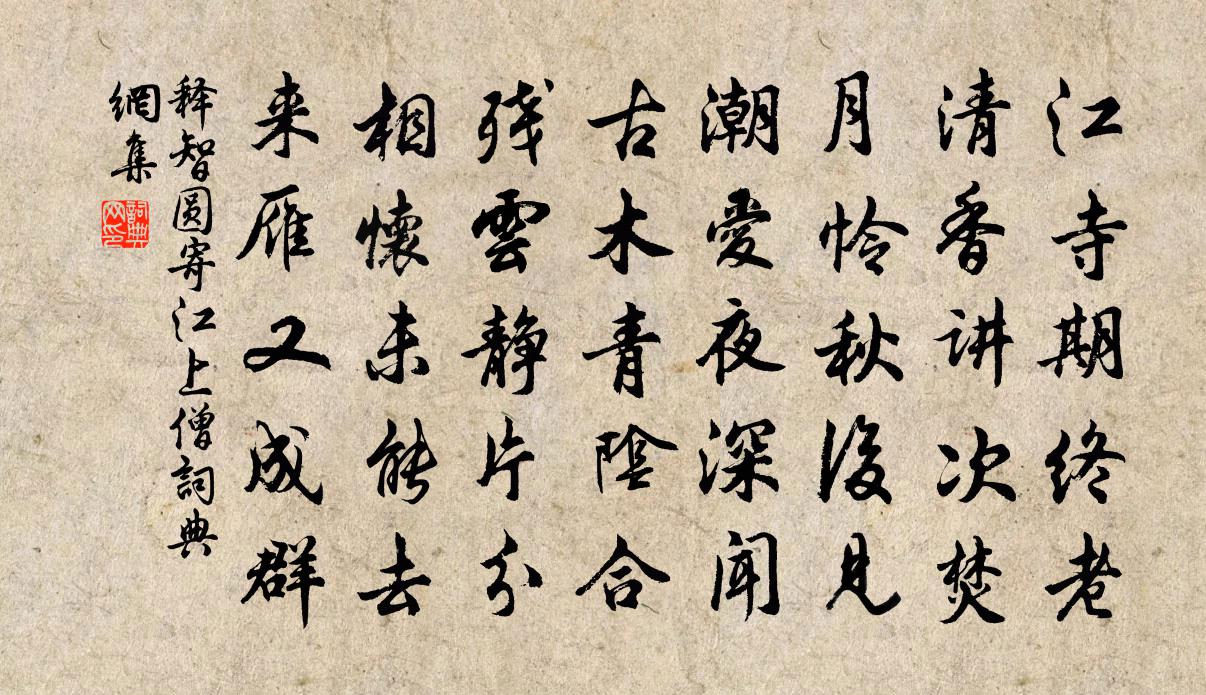 江寺期终老
清香讲次焚
月怜秋後見
潮愛夜深闻
古木青陰合
残雲静片分
相懷未能去
来雁又成群
释智圆寄江上僧詞典
網集
詞典
网印